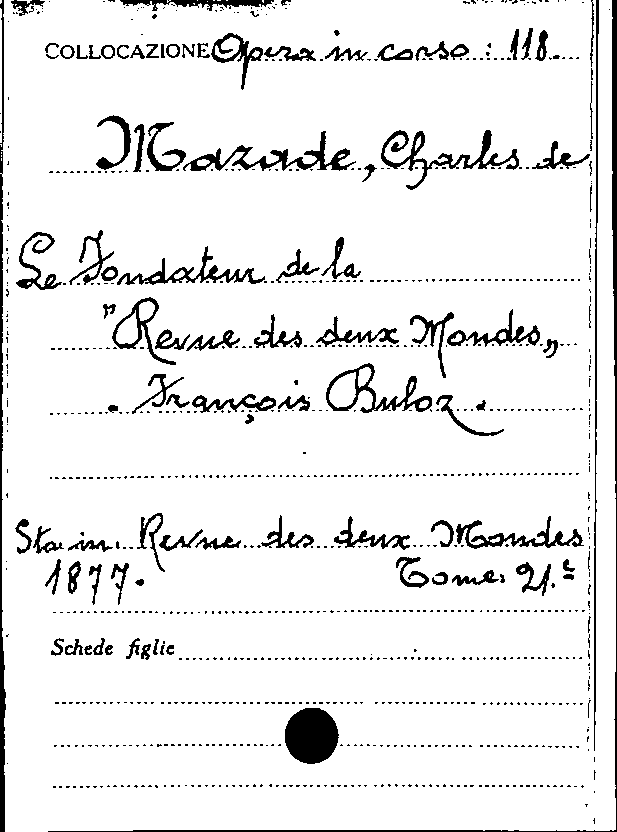 COLLOCAZIONE Opera in corso : 118.
Mazade, Charles de
Le Fondateur de la
"Revue des deux Mondes„
. François Buloz .
Sta in. Revue des deux Mondes
1877. Tome: 21.e
Schede figlie